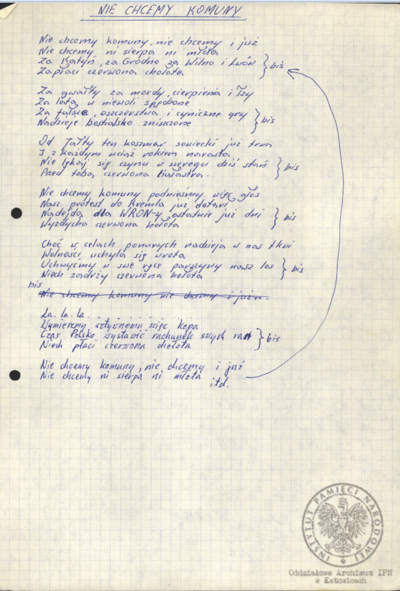 NIE CHCEMY KOMUNY
Nie chcemy komuny, nie chcemy i już
Nie chcemy ni sierpa ni młota
Za Katyń, za Grodno za Wilno i Lwów } bis
Zapłaci czerwona hołota
Za gwałty za mordy, cierpienia i łzy
Za lata w niewoli spędzone
Za fałsze, oszczerstwa i cyniczne gry } bis
Nadzieje bestialsko zniszczone
Od Jałty ten koszmar sowiecki już trwa
I z każdym wciąż rokiem narasta
Nie lękaj się czynu w szeregu dziś stań } bis
Przed tobą czerwona
Nie chcemy komuny podnieśmy więc głos
Nasz protest do Kremla już dotarł
Nadejdą dla WRON-y ostatnie już dni } bis
Wyzdycha czerwona hołota
Choć w celach ponurych nadzieja w nas tkwi
Wolności uchyla się wrota
Uchwyćmy w swe ręce nasz los } bis
Niech zadrży czerwona hołota
bis
Nie chcemy komuny nie chcemy i już
La. la. la. . . . . . . .
Wymierzmy więc kopa
Czas Polsko wystawić rachunek swych } bis
Niech płaci czerwona hołota
Nie chcemy komuny, nie chcemy i już
Nie chcemy ni sierpa ni młota
itd.
INSTYTUT PAMIĘCI NARODOWEJ
Oddziałowe Archiwum IPN
w Katowicach